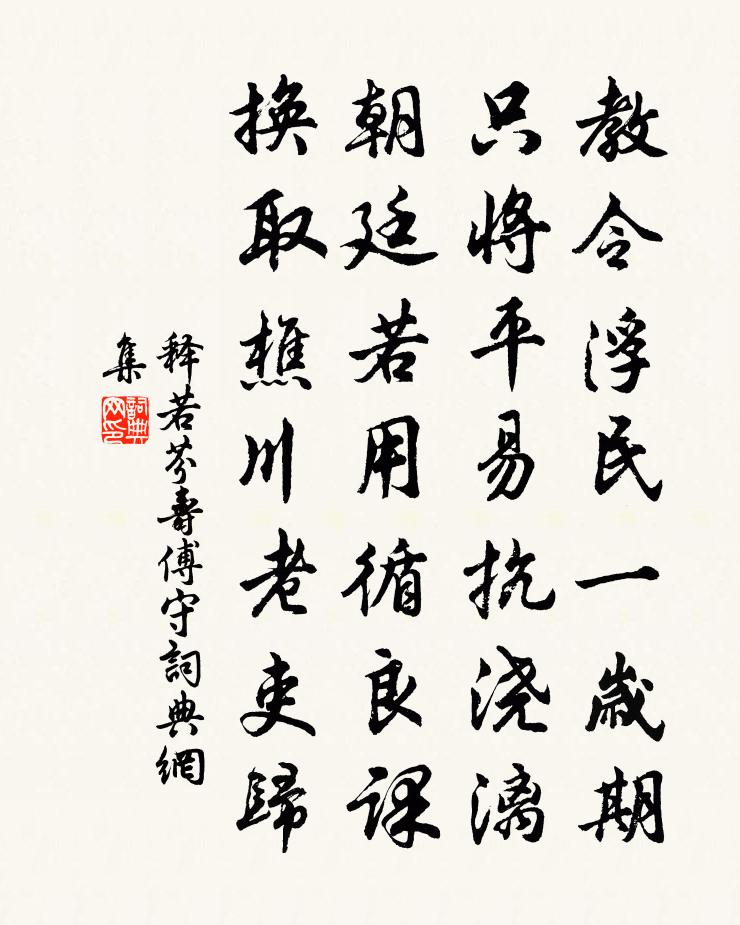 教令浮民一歲期
只將平易抗浇漓
朝廷若用循良課
換取樵川老吏歸
释若芬壽傅守詞典網
集
詞典
网印